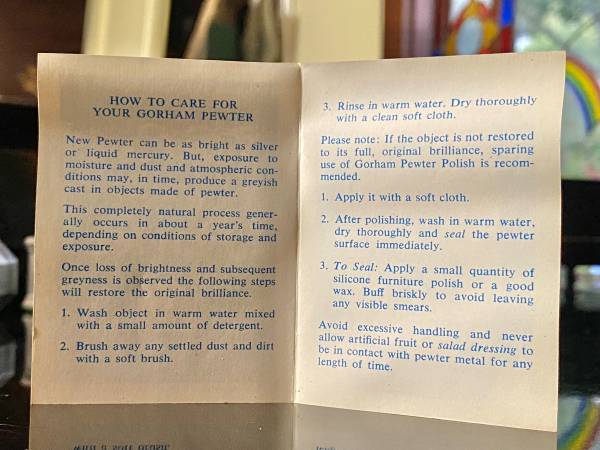 HOW TO CARE FOR
YOUR GORHAM PEWTER
New Pewter can be as bright as silver
or liquid mercury. But, exposure to
moisture and dust and atmospheric con-
ditions may, in time, produce a greyish
cast in objects made of pewter.
This completely natural process gener-
ally occurs in about a year's time,
depending on conditions of storage and
exposure.
Once loss of brightness and subsequent
greyness is observed the following steps
will restore the original brilliance.
1. Wash object in warm water mixed
with a small amount of detergent.
2. Brush away any settled dust and dirt
with a soft brush.
3. Rinse in warm water. Dry thoroughly
with a clean soft cloth.
Please note: If the object is not restored
to its full, original brilliance, sparing
use of Gorham Pewter Polish is recom-
mended.
1. Apply it with a soft cloth.
2. After polishing, wash in warm water,
dry thoroughly and seal the pewter
surface immediately.
3. To Seal: Apply a small quantity of
silicone furniture polish or a good
wax. Buff briskly to avoid leaving
any visible smears.
Avoid excessive handling and never
allow artificial fruit or salad dressing to
be in contact with pewter metal for any
length of time.